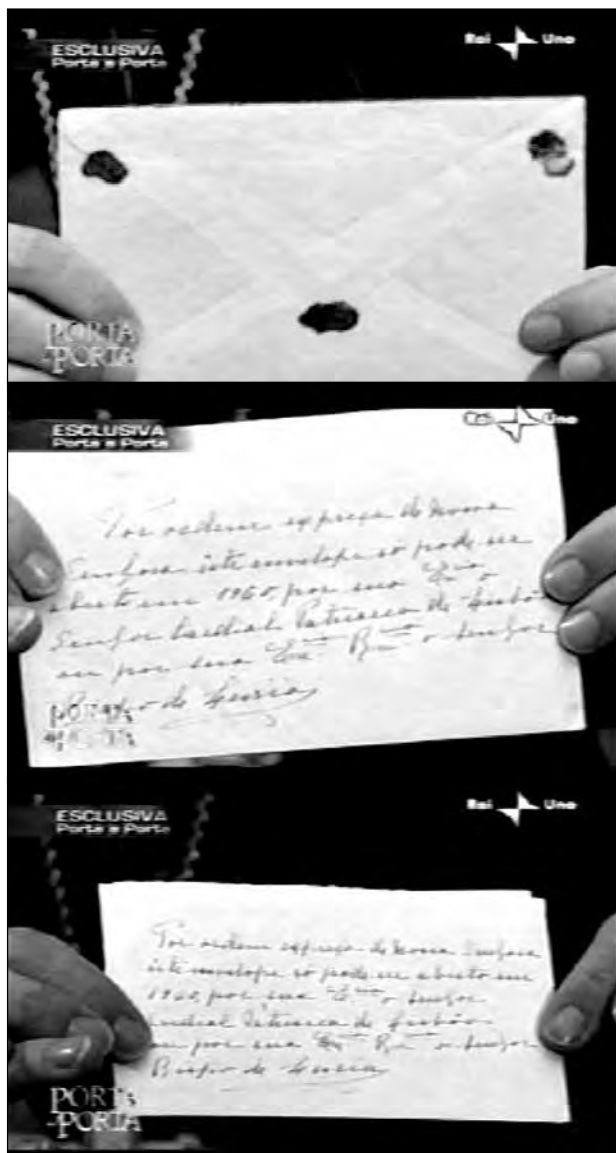 ESCLUSIVA
Porta a Porta
Rai Uno
PORTA
a PORTA
ESCLUSIVA
Porta a Porta
Uno
Por ordem expreça de Nossa
Senhora êste envelope só pode ser
aberto em 1960, por sua o
Senhor Cardial Patriarca de Lisbôa
ou por sua o Senhor
Bispo de Leiria
ESCLUSIVA
Porta a Porta
Rai Uno
Por ordem expreça de Nossa Senhora
êste envelope só pode ser aberto em
1960, por sua o Senhor
Cardial Patriarca de Lisbôa
ou por sua o Senhor
Bispo de Leiria
PORTA
a PORTA